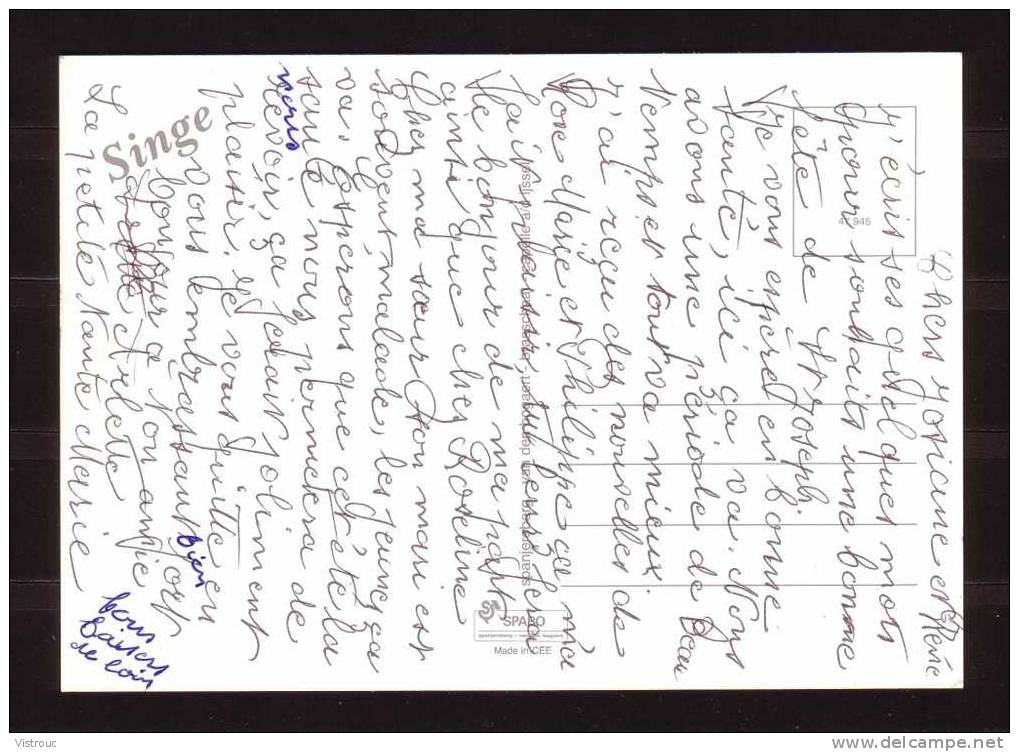 Chers Josiane et René
J'écris ses quelques mots
pour souhaits une bonne
Fête de St Joseph.
Je vous espère en bonne
santé, ici ça va. Nous
avons une période de beau
temps et tout va mieux
J'ai reçu des nouvelles de
Rose Marie et Philippe ça m'a
fait plaisir, tu ferez
le bonjour de ma part
ainsi que chez Roseline
Chez ma sœur son mari est
souvent malade, les jeunes ça
va. Espérons que cet été la
santé nous permettera de
venir
revoir, ça ferait joliment
plaisir. Je vous quitte en
vous embrassant bien fort
Bonjour à ton amie
Arlette
La petite Nante Marie
bons
baisers
de loin
Singe
47.945
SPABO
Made in CEE
Vistrouc
www.delcampe.net